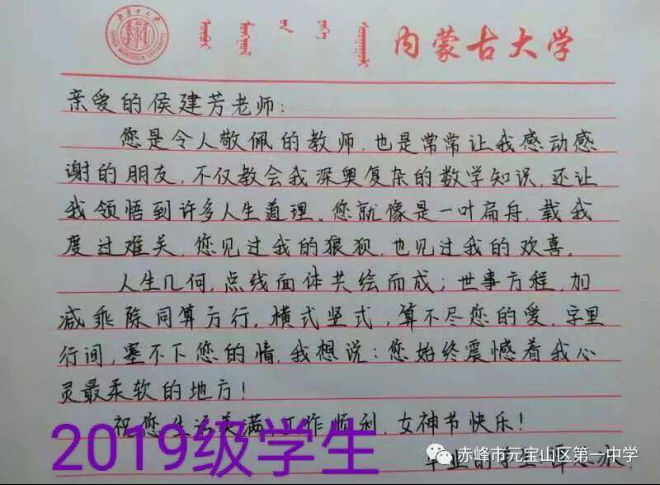 内蒙古大学
亲爱的侯建芳老师：
您是令人敬佩的教师，也是常常让我感动感
谢的朋友，不仅教会我深奥复杂的数学知识，还让
我领悟到许多人生道理，您就像是一叶扁舟，载我
度过难关，您见过我的狼狈，也见过我的欢喜。
人生几何，点线面体共绘而成；世事方程，加
减乘除同算方行，横式竖式，算不尽您的爱，字里
行间，塞不下您的情，我想说：您始终震憾着我心
灵最柔软的地方！
祝您生活美满，工作顺利，女神节快乐！
2019级学生
毕业的学生
赤峰市元宝山区第一中学